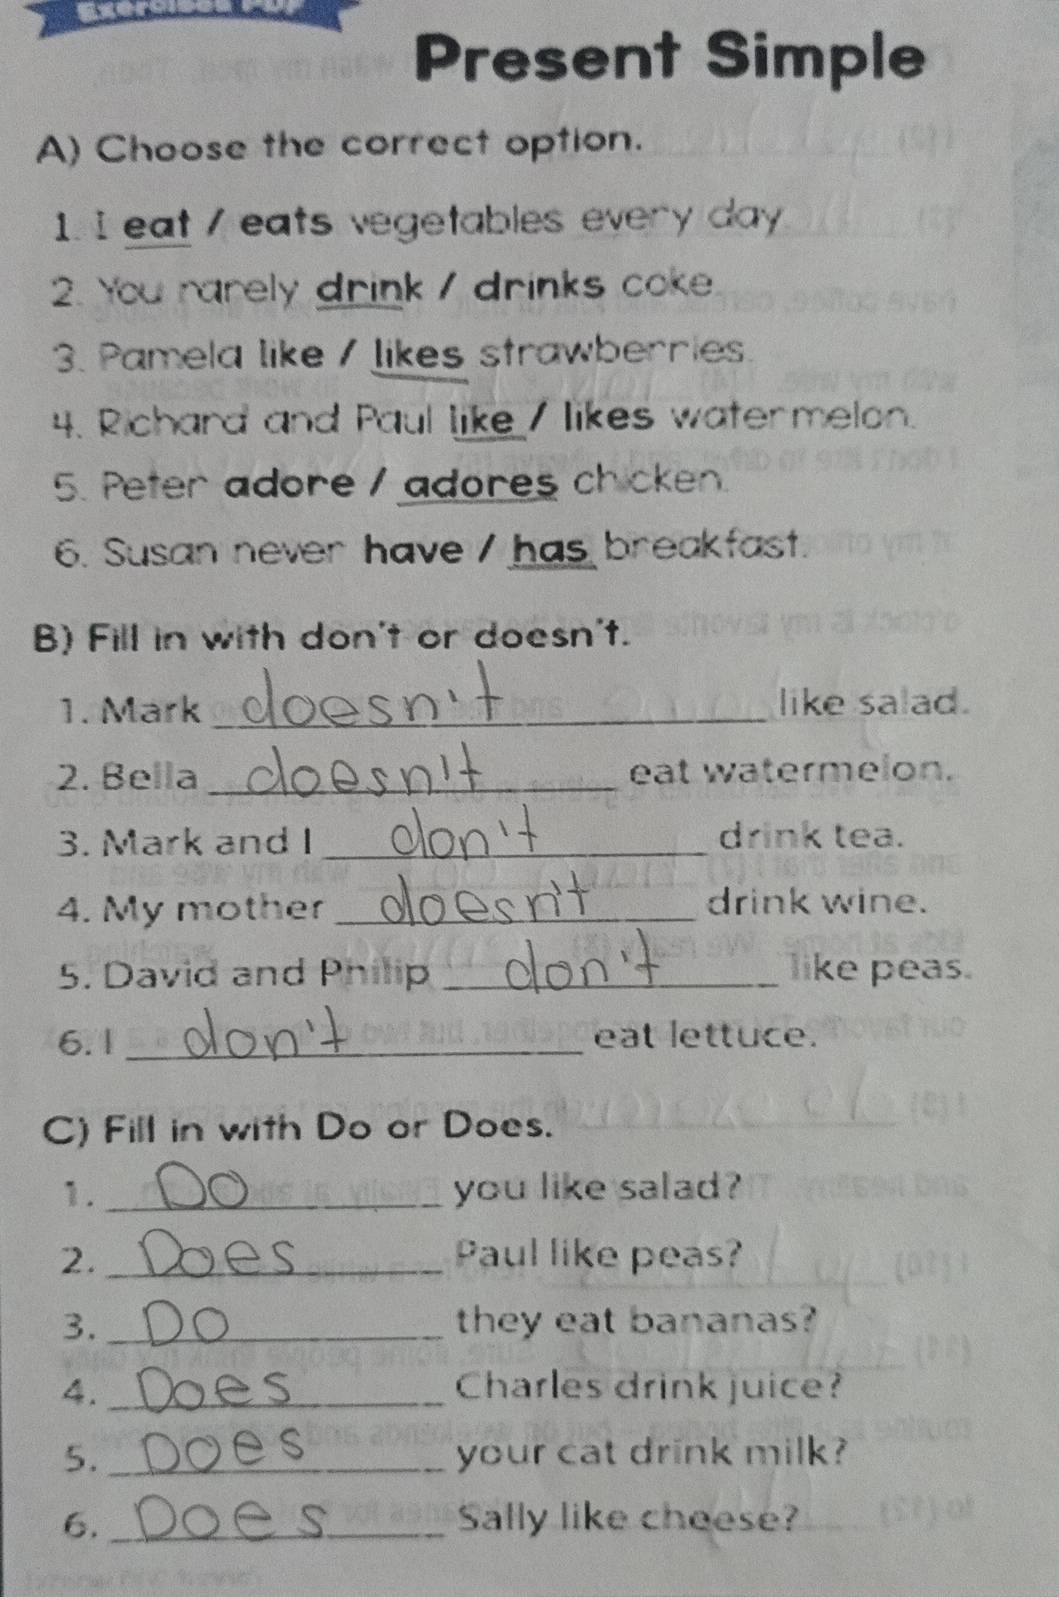 Exercises PDF
Present Simple
A) Choose the correct option.
1. I eat / eats vegetables every day.
2. You rarely drink / drinks coke.
3. Pamela like / likes strawberries.
4. Richard and Paul like / likes watermelon.
5. Peter adore / adores chicken.
6. Susan never have / has breakfast.
B) Fill in with don't or doesn't.
1. Mark doesn't like salad.
2. Bella doesn't eat watermelon.
3. Mark and I don't drink tea.
4. My mother doesn't drink wine.
5. David and Philip don't like peas.
6. I don't eat lettuce.
C) Fill in with Do or Does.
1. Do you like salad?
2. Does Paul like peas?
3. Do they eat bananas?
4. Does Charles drink juice?
5. Does your cat drink milk?
6. Does Sally like cheese?